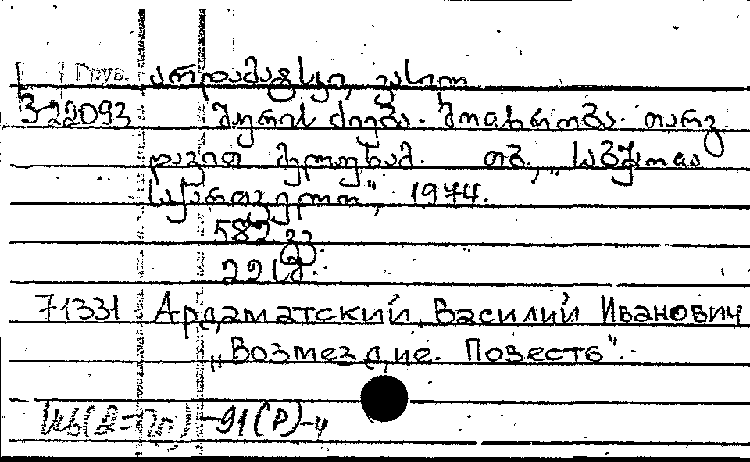 Груз. არდამატსკი, ვასილ
3-22093 შურის ძიება. მოთხრობა. თარგ
დავით მელუხამ. თბ., „საბჭოთა
საქართველო", 1974.
589 გვ
71331 Ардаматский, Василий Иванович
„Возмездие. Повесть".
-91(Р)-4